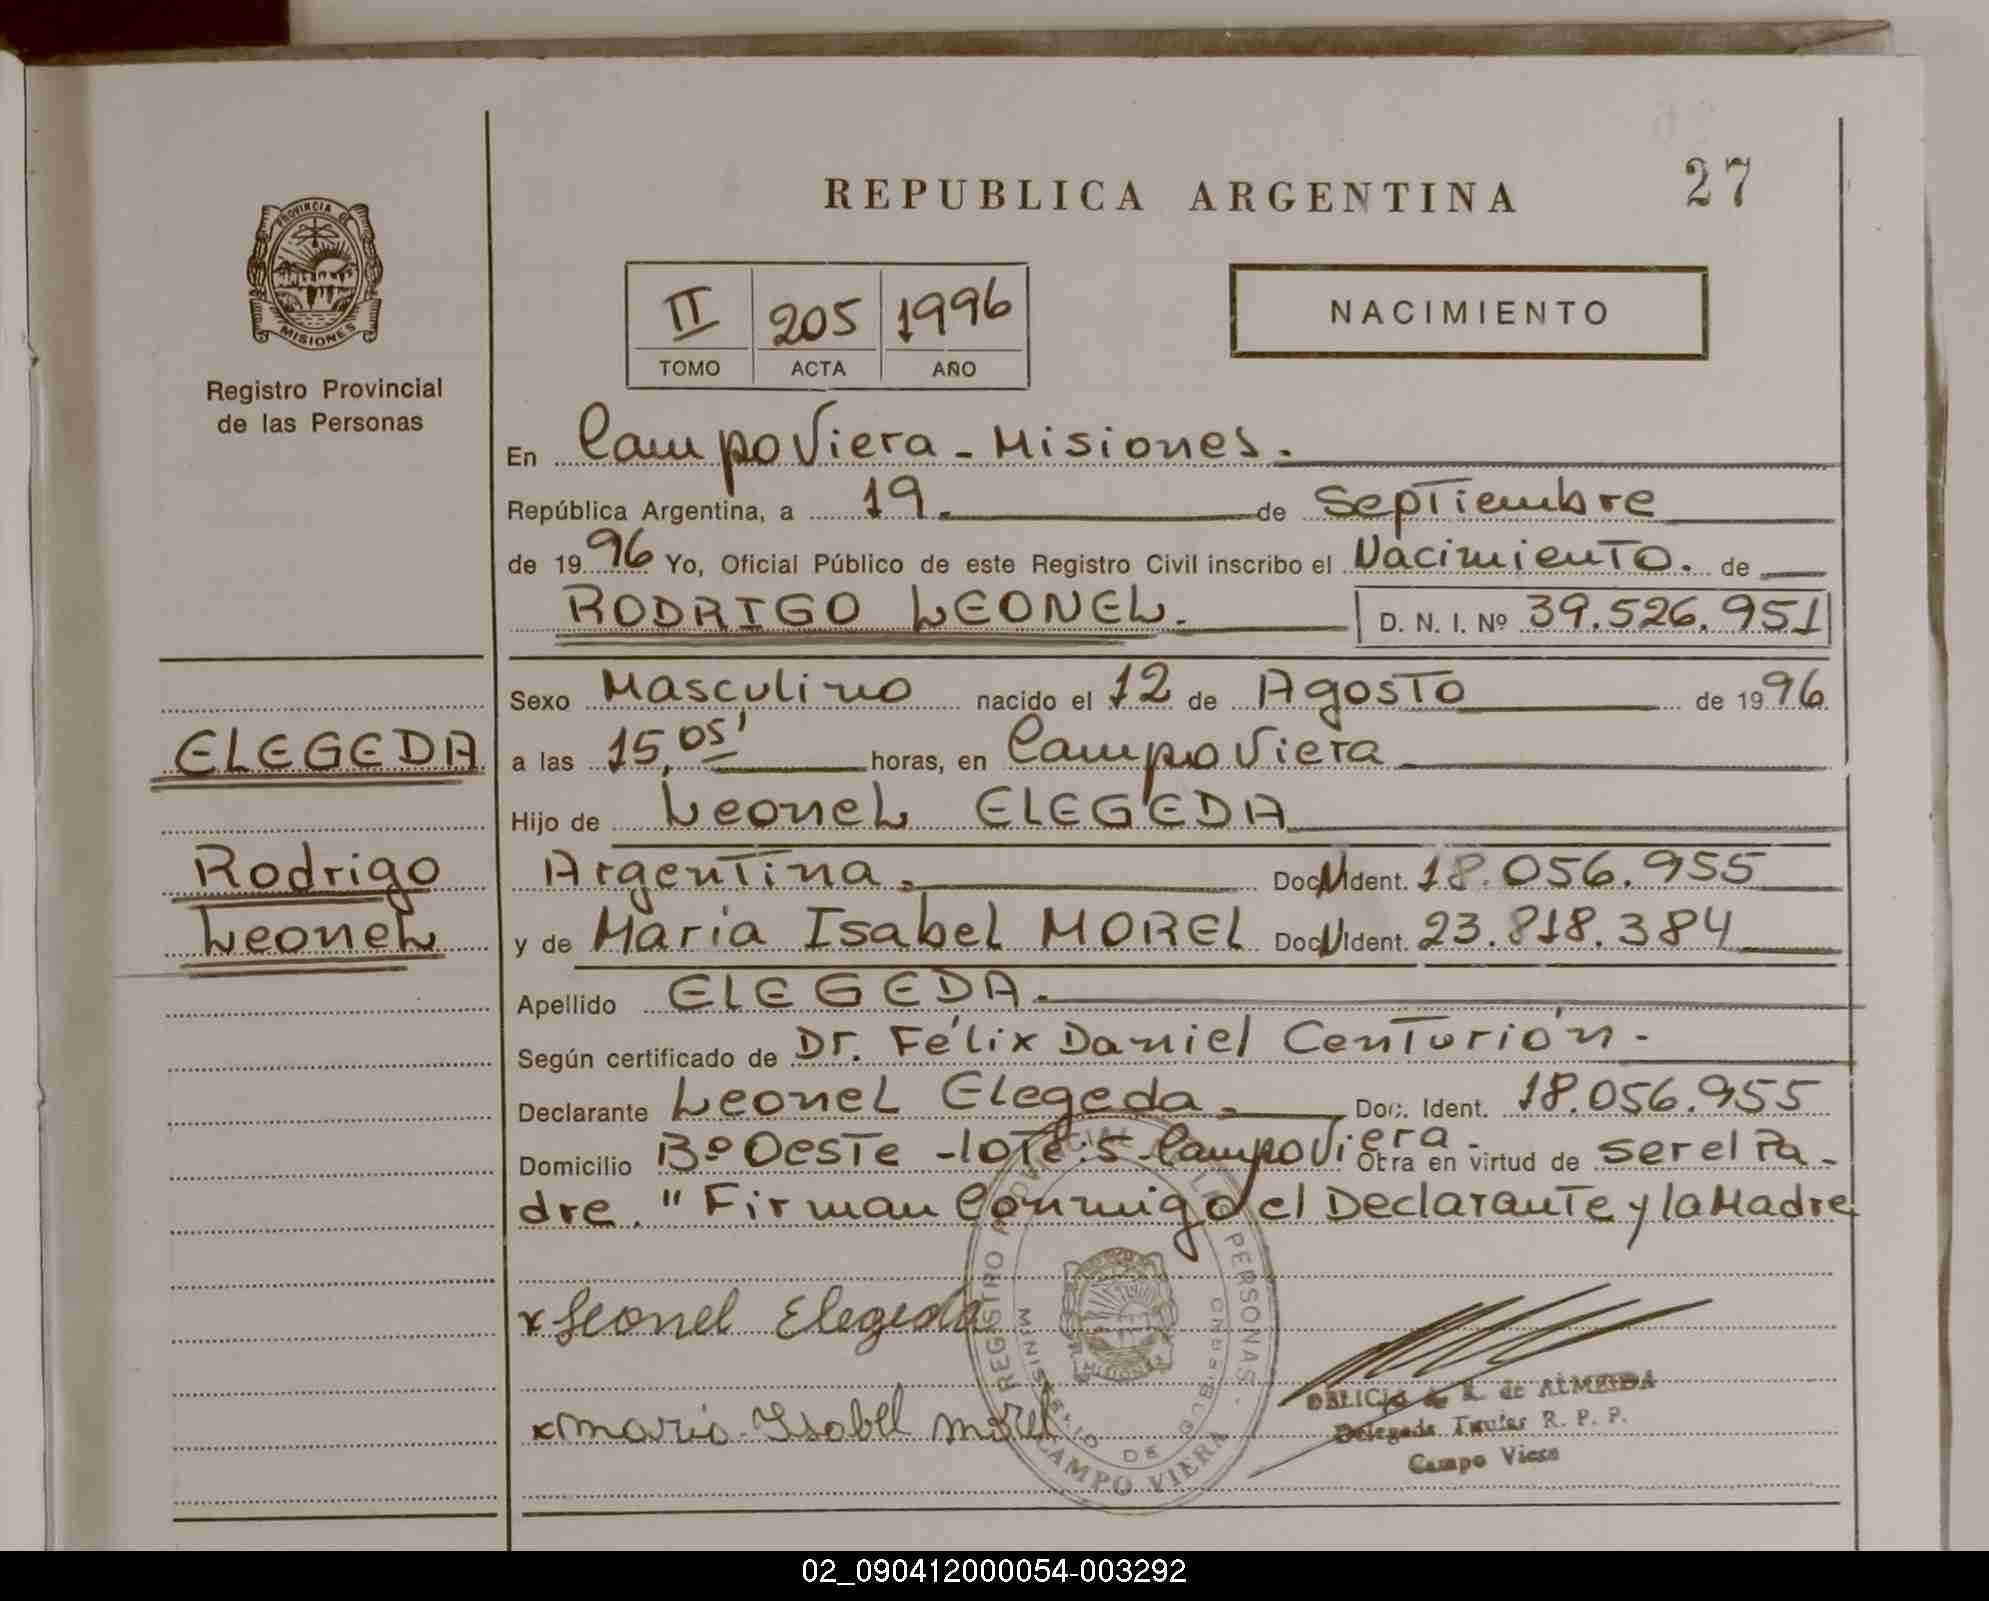 27
REPUBLICA ARGENTINA
PROVINCIA DE
MISIONES
Registro Provincial
de las Personas
II 205 1996
TOMO ACTA AÑO
NACIMIENTO
En Campo Viera - Misiones.
República Argentina, a 19. de Septiembre
de 1996 Yo, Oficial Público de este Registro Civil inscribo el Nacimiento. de
RODRIGO LEONEL. D. N. I. Nº 39.526.951
Sexo Masculino nacido el 12 de Agosto de 1996
ELEGEDA
a las 15,05' horas, en Campo Viera
Hijo de Leonel ELEGEDA
Rodrigo
Argentina. Doc. N Ident. 18.056.955
Leonel
y de Maria Isabel MOREL Doc. N Ident. 23.818.384
Apellido ELEGEDA.
Según certificado de Dr. Félix Daniel Centurión -
Declarante Leonel Elegeda. Doc. Ident. 18.056.955
Domicilio Bº Oeste - lote: 5 - Campo Viera - Obra en virtud de ser el Pa-
dre. " Firman Conmigo el Declarante y la Madre
x Leonel Elegeda
x maria Isabel morel
REGISTRO PROVINCIAL DE LAS PERSONAS
MINISTERIO DE GOBIERNO
MISIONES
CAMPO VIERA
R. de ALMEIDA
Delegada Titular R. P. P.
Campo Viera
02_090412000054-003292